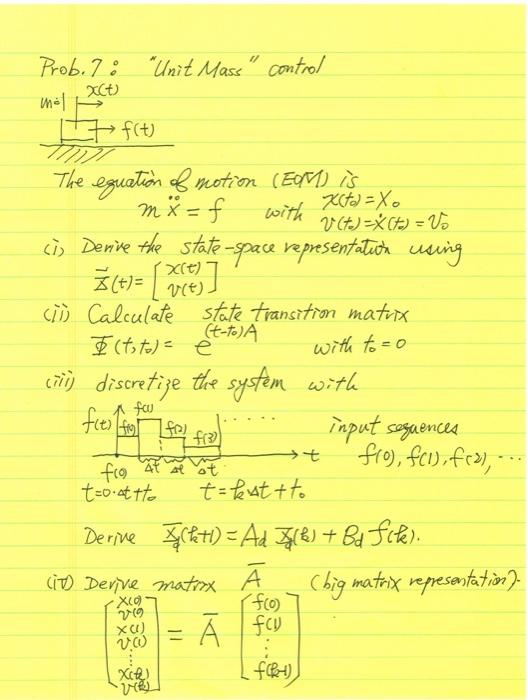 Prob. 7: "Unit Mass" control
x(t)
m=1
→ f(t)
The equation of motion (EOM) is
m ẍ = f with x(t₀) = X₀
v(t₀) = ẋ(t₀) = V₀
(i) Derive the state-space representation using
X⃗(t) = [x(t) v(t)]
(ii) Calculate state transition matrix
Φ(t,t₀) = e^(t-t₀)A with t₀ = 0
(iii) discretize the system with
f(t) f(0) f(1) f(2) f(3) .....
input sequences
f(0), f(1), f(2), ...
f(0) Δt Δt Δt → t
t=0·Δt+t₀ t=kΔt+t₀
Derive X_d(k+1) = A_d X_d(k) + B_d f(k).
(iv) Derive matrix Ā (big matrix representation).
[x(0) v(0) x(1) v(1) ⋮ x(k) v(k)] = Ā [f(0) f(1) ⋮ f(k-1)]